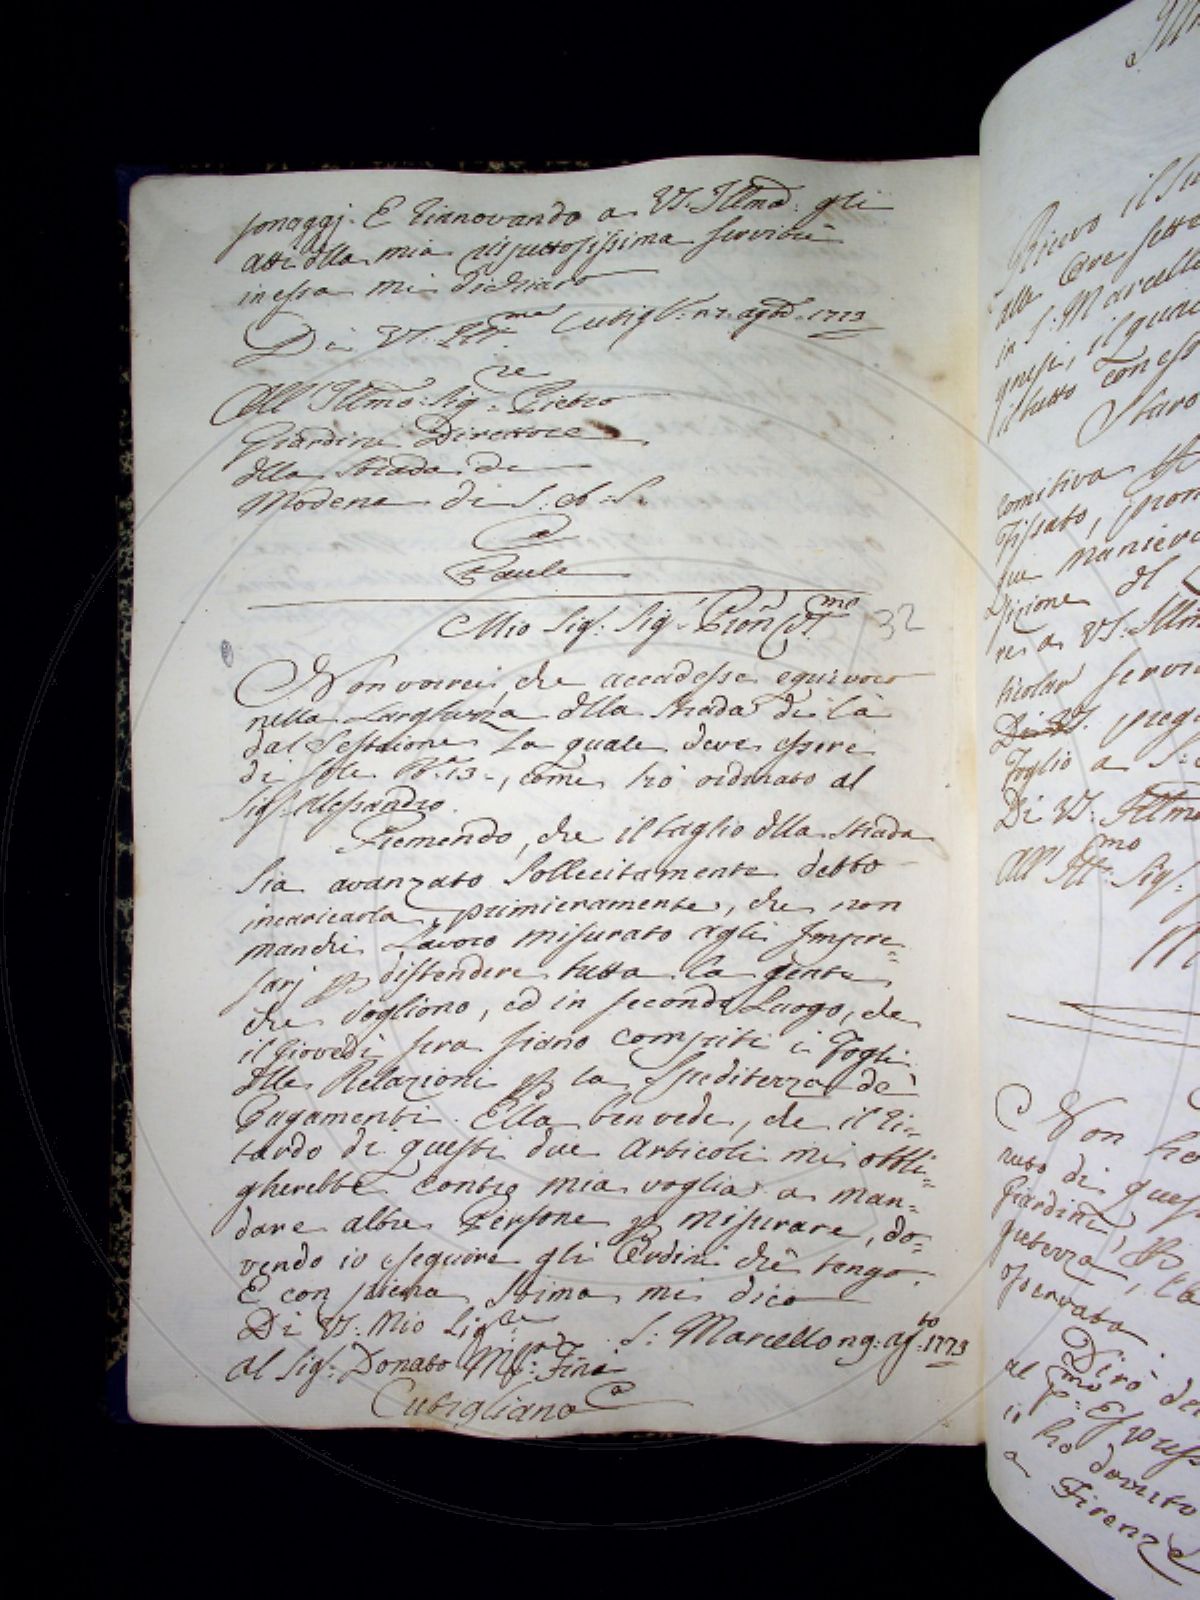 sonaggj. E rinnovando a VS. Illma: gli
atti della mia rispettosissima servitù
in essa mi dichiaro
Di VS. Ill:me Cutigl: 17. agto. 1773
All' Illmo: Sig:re Pietro
Giardini Direttore
della Strada di
Modena di S: A: S.
a
Paule
Mio Sig: Sig: Pron: Col:mo 32
Non vorrei, che accadesse equivoco
nella Larghezza della Strada di là
dal Sestaione, la quale deve essere
di sole B:a 13 -, come hò ordinato al
Sig: Alessandro.
Premendo, che il taglio della Strada
sia avanzato sollecitamente debbo
incaricarla, primieramente, che non
manchi Lavoro misurato agli Impre=
sarj p distendere tutta la gente,
che vogliono, ed in secondo Luogo, che
il Giovedì sera siano compiti i Fogli
delle Relazioni p la speditezza de'
Pagamenti. Ella ben vede, che il ri=
tardo di questi due Articoli mi obbli=
gherebbe contro mia voglia a man=
dare altre Persone p misurare, do=
vendo io eseguire gli Ordini che tengo.
E con piena Stima mi dico
Di VS: Mio Sig:re S: Marcello 19: ag:to 1773
al Sig: Donato M: Fini
Cutigliano
Ricevo il Su
alle Ore sette
in S: Marcello
gnesi, il quin
il tutto con es
Staro
comitiva
Fissato, pron
que maniera
dizione del
re a VS: Illm
ticolar servi
Di VS. preg
Foglio a S:
Di VS: Illm
All' Ill:mo Sig:
M
Non ho
nuto di ques
Giardini,
guterza, la
osservata.
Dirò de
al P:mo Espress
io ho dovuto
a Firenze